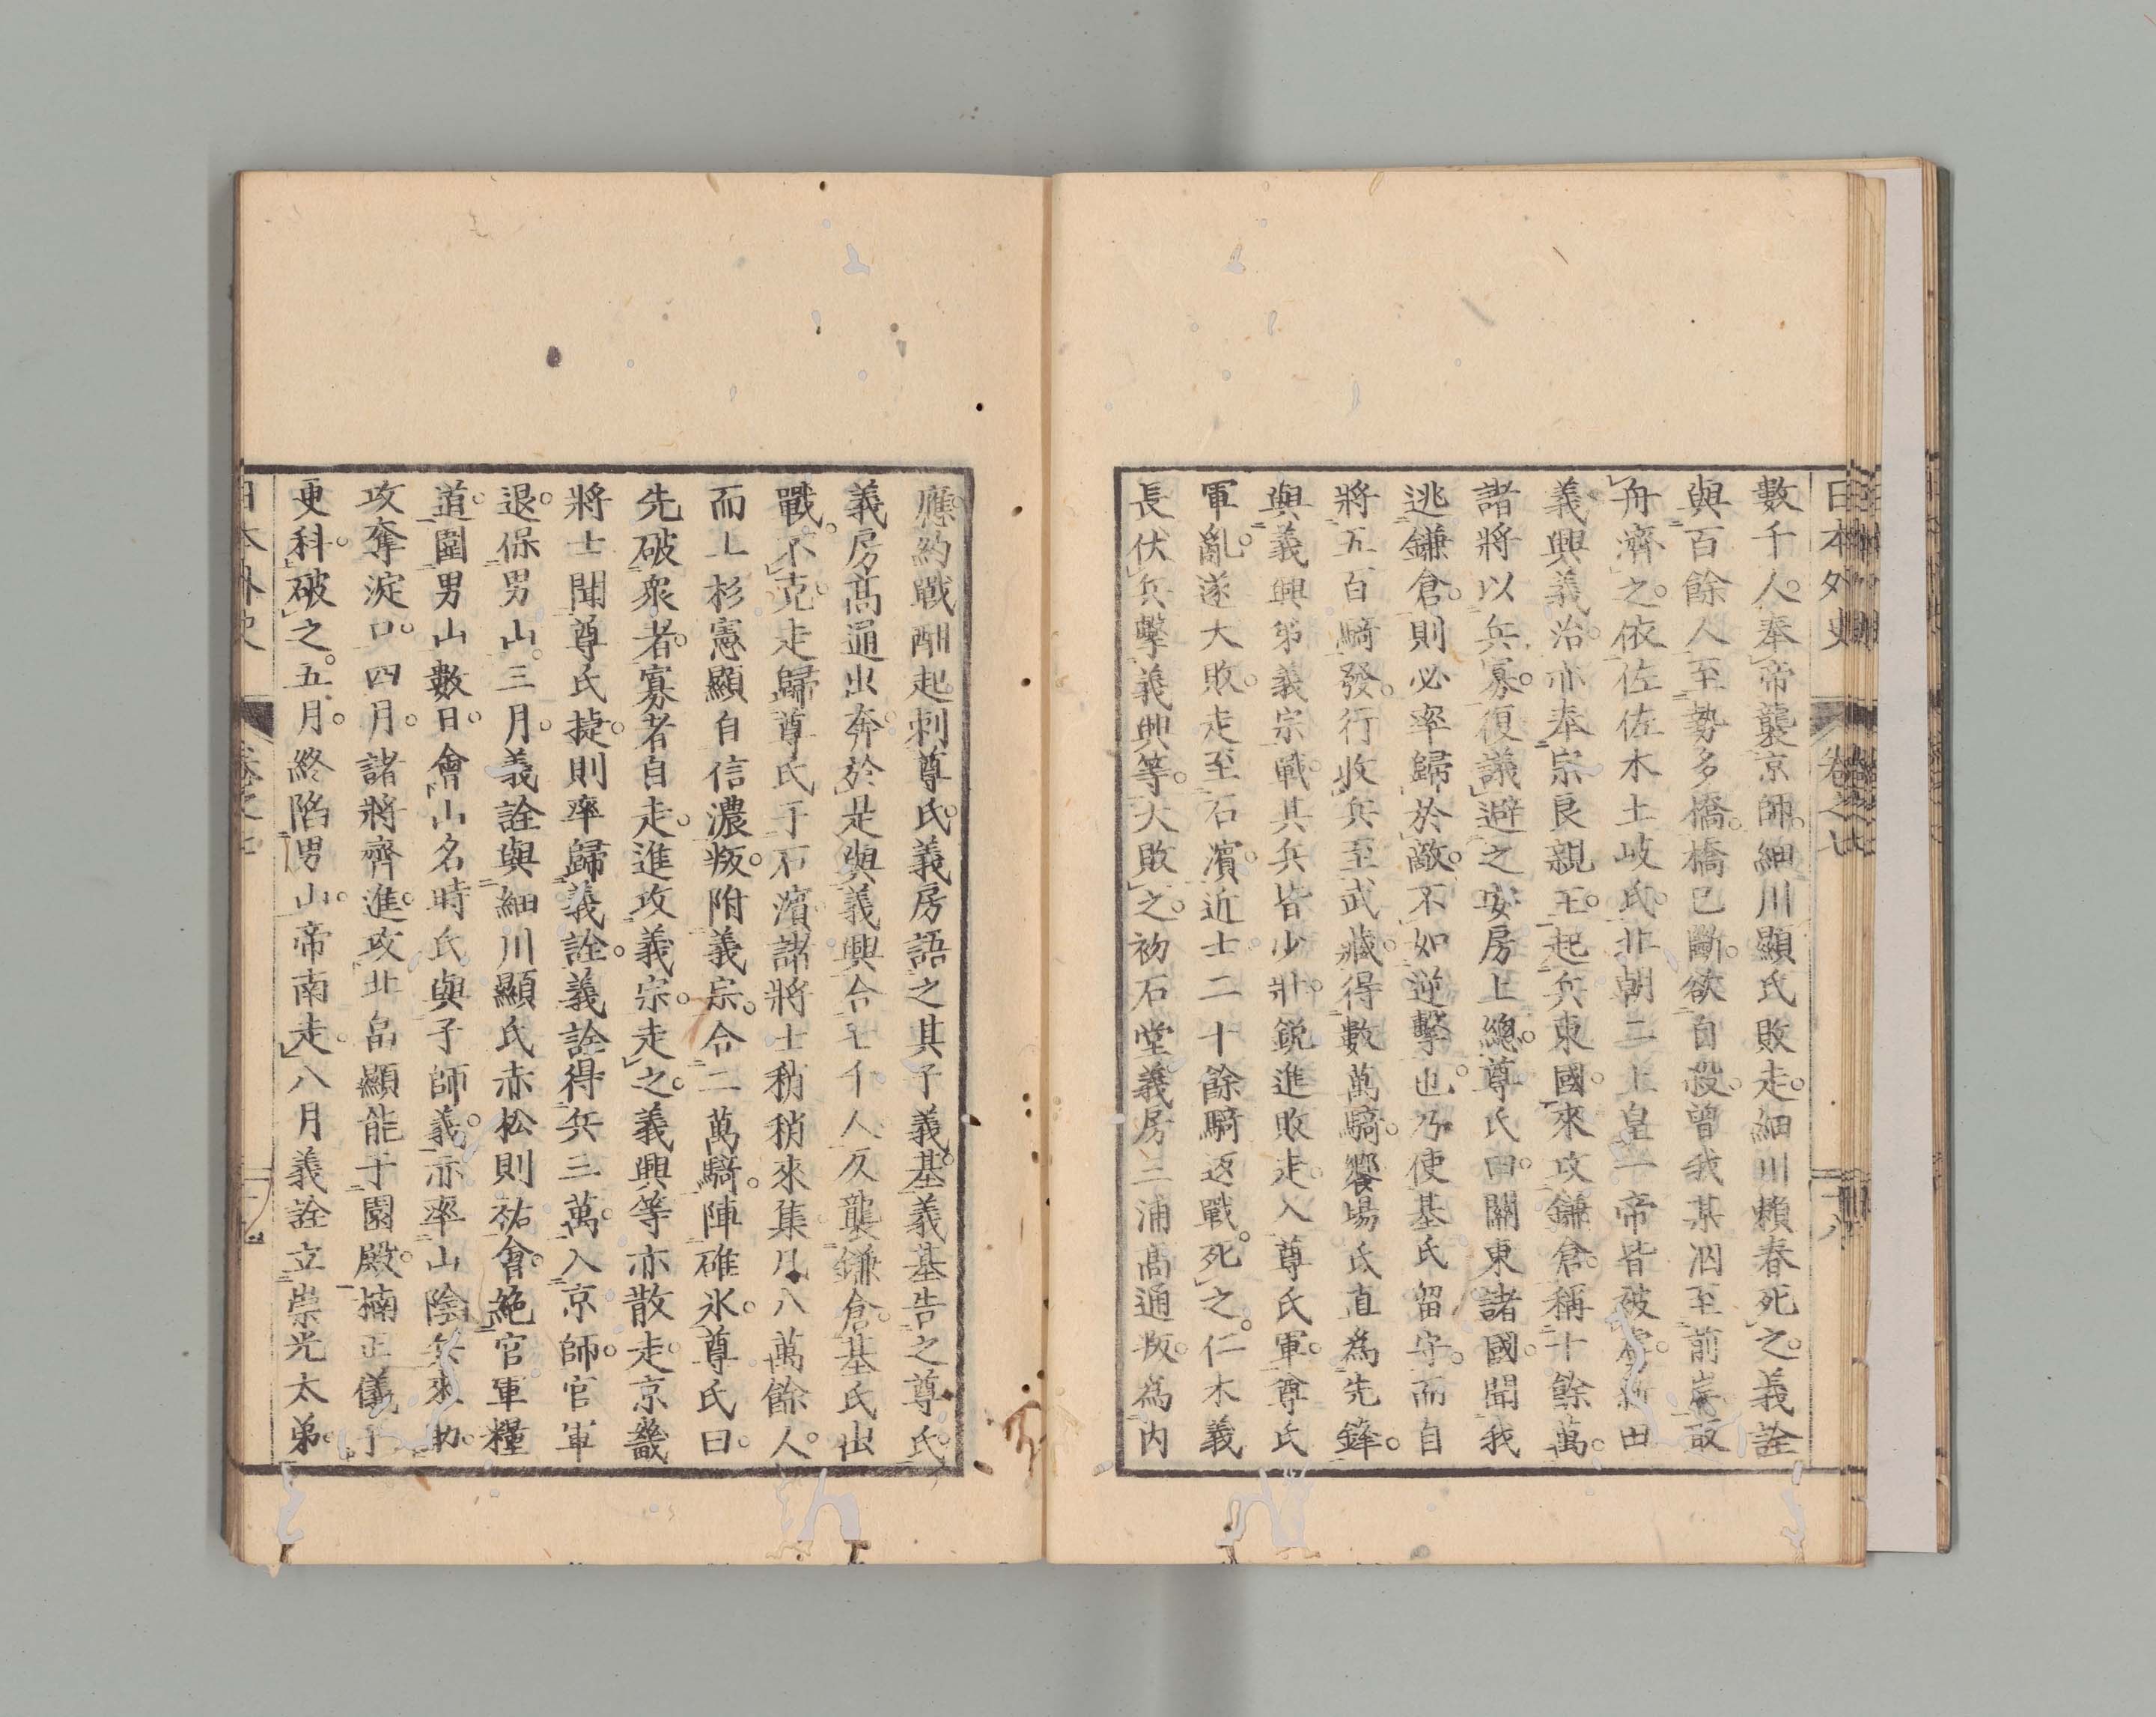 日本外史 卷之七
數千人。奉帝襲京師。細川顯氏敗走。細川賴春死之。義詮
與百餘人至勢多橋。橋已斷。欲自殺。曾我某泅至前岸。取
舟濟之。依佐佐木土岐氏。北朝二上皇一帝皆被虜。新田
義興義治。亦奉宗良親王。起兵東國。來攻鎌倉。稱十餘萬。
諸將以兵寡。復議避之安房上總。尊氏曰。關東諸國。聞我
逃鎌倉。則必率歸於敵。不如逆擊也。乃使基氏留守。而自
將五百騎發。行收兵至武藏。得數萬騎。饗場氏直爲先鋒。
與義興弟義宗戰。其兵皆少壯。銳進敗走。入尊氏軍。尊氏
軍亂。遂大敗。走至石濱。近士二十餘騎返戰。死之。仁木義
長伏兵擊義興等。大敗之。初石堂義房三浦高通叛。爲內
應。約戰酣起刺尊氏。義房語之其子義基。義基告之尊氏。
義房高通出奔。於是與義興合七千人。反襲鎌倉。基氏出
戰。不克。走歸尊氏于石濱。諸將士稍稍來集。凡八萬餘人。
而上杉憲顯自信濃叛。附義宗。合二萬騎。陣碓氷。尊氏曰。
先破衆者。寡者自走。進攻義宗。走之。義興等亦散走。京畿
將士聞尊氏捷。則率歸義詮。義詮得兵三萬。入京師。官軍
退。保男山。三月。義詮與細川顯氏赤松則祐會。絶官軍糧
道。圍男山數日。會山名時氏與子師義。亦率山陰兵來助。
攻奪淀口。四月。諸將齊進。攻北畠顯能于園殿。楠正儀于
更科。破之。五月。終陷男山。帝南走。八月義詮立崇光太弟。
日本外史 卷之七